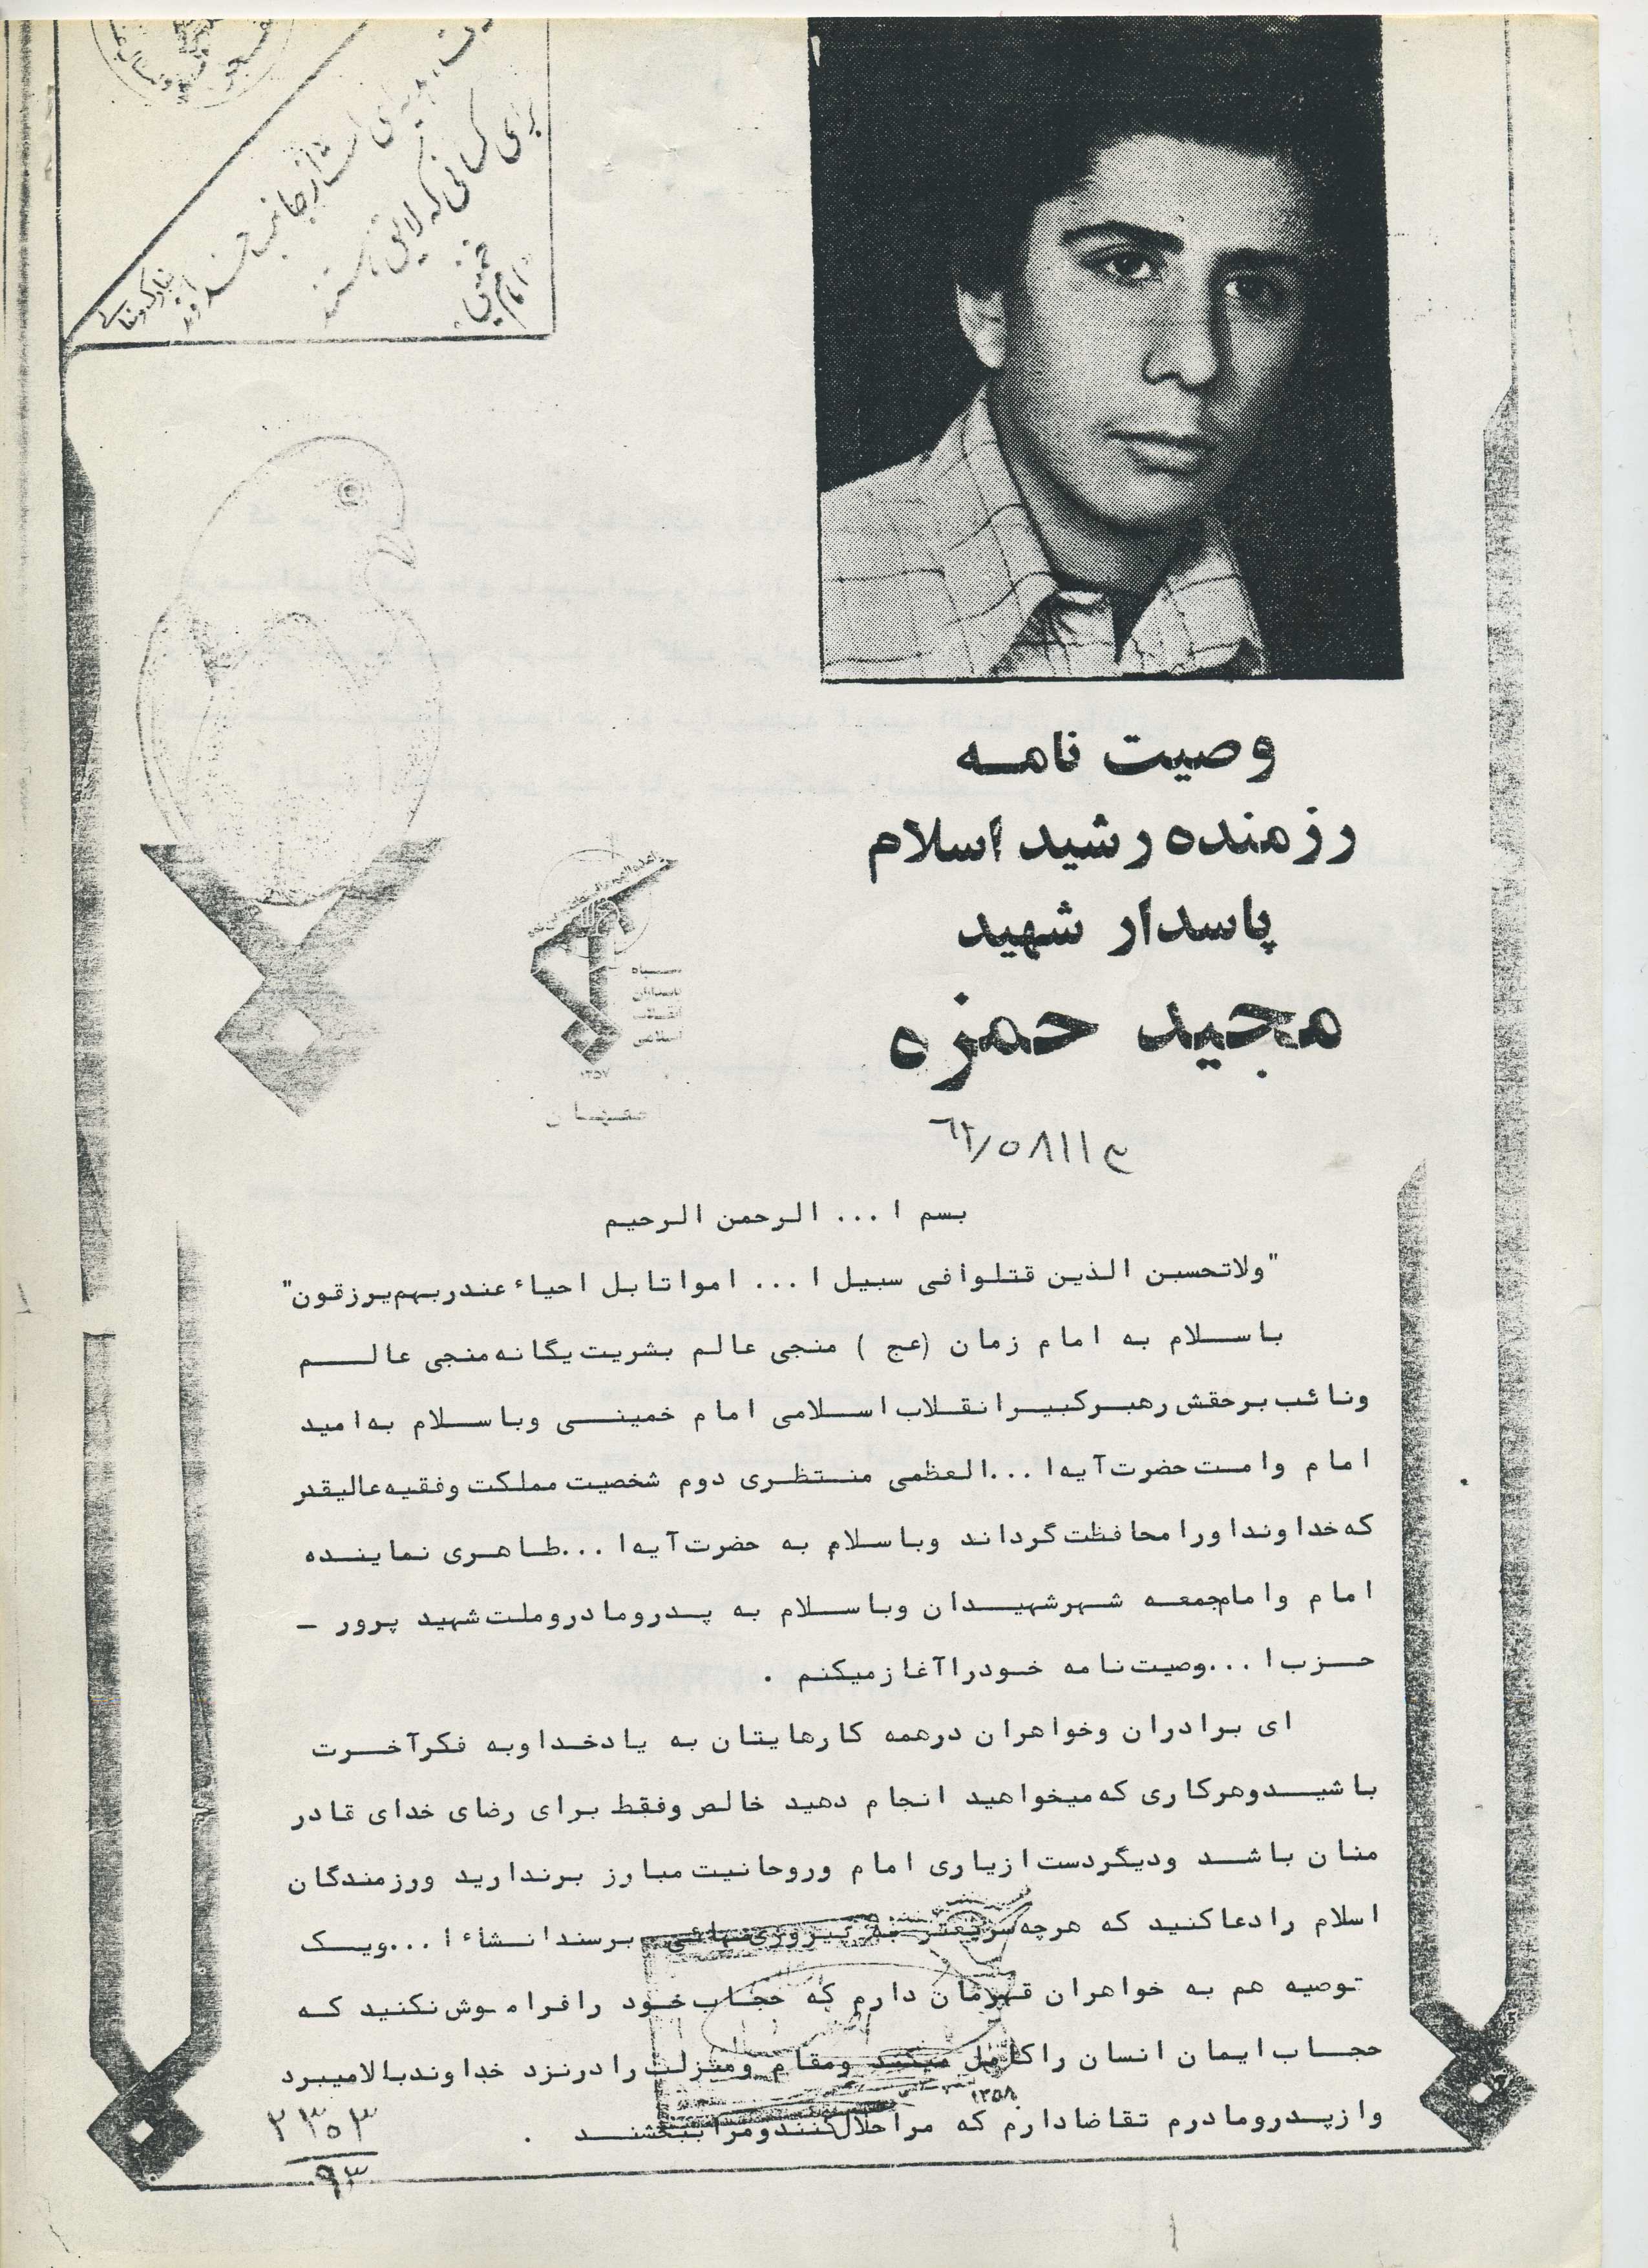 شهادت هدیه‌ای است از جانب خداوند تبارک و تعالی
برای کسانی که لایق هستند
"امام خمینی"
وصیت نامه
رزمنده رشید اسلام
پاسدار شهید
مجید حمزه
سپاه
پاسداران
انقلاب
اسلامی
۱۳۵۷
اصفهان
بسم ا... الرحمن الرحیم
"ولاتحسبن الذین قتلوا فی سبیل ا... امواتا بل احیاء عندربهم یرزقون"
با سلام به امام زمان (عج) منجی عالم بشریت یگانه منجی عالم
ونائب برحقش رهبرکبیر انقلاب اسلامی امام خمینی وبا سلام به امید
امام وامت حضرت آیه ا...العظمی منتظری دوم شخصیت مملکت وفقیه عالیقدر
که خداوند اورا محافظت گرداند وبا سلام به حضرت آیه ا...طاهری نماینده
امام وامام جمعه شهر شهیدان وبا سلام به پدرومادروملت شهید پرور -
حزب ا...وصیت نامه خودرا آغاز میکنم .
ای برادران وخواهران درهمه کارهایتان به یادخدا وبه فکرآخرت
باشید وهرکاری که میخواهید انجام دهید خالص وفقط برای رضای خدای قادر
منان باشد ودیگر دست ازیاری امام وروحانیت مبارز برندارید ورزمندگان
اسلام رادعا کنید که هرچه سریعتر به پیروزی نهائی برسند انشاء ا...ویک
توصیه هم به خواهران قهرمان دارم که حجاب خود رافراموش نکنید که
حجاب ایمان انسان را کامل میکند ومقام ومنزلت را درنزد خداوند بالا میبرد
وازپدرومادرم تقاضا دارم که مرا حلال کنند ومرا ببخشند .
۱۳۵۸
۲۳۵۳
۹۳
۱